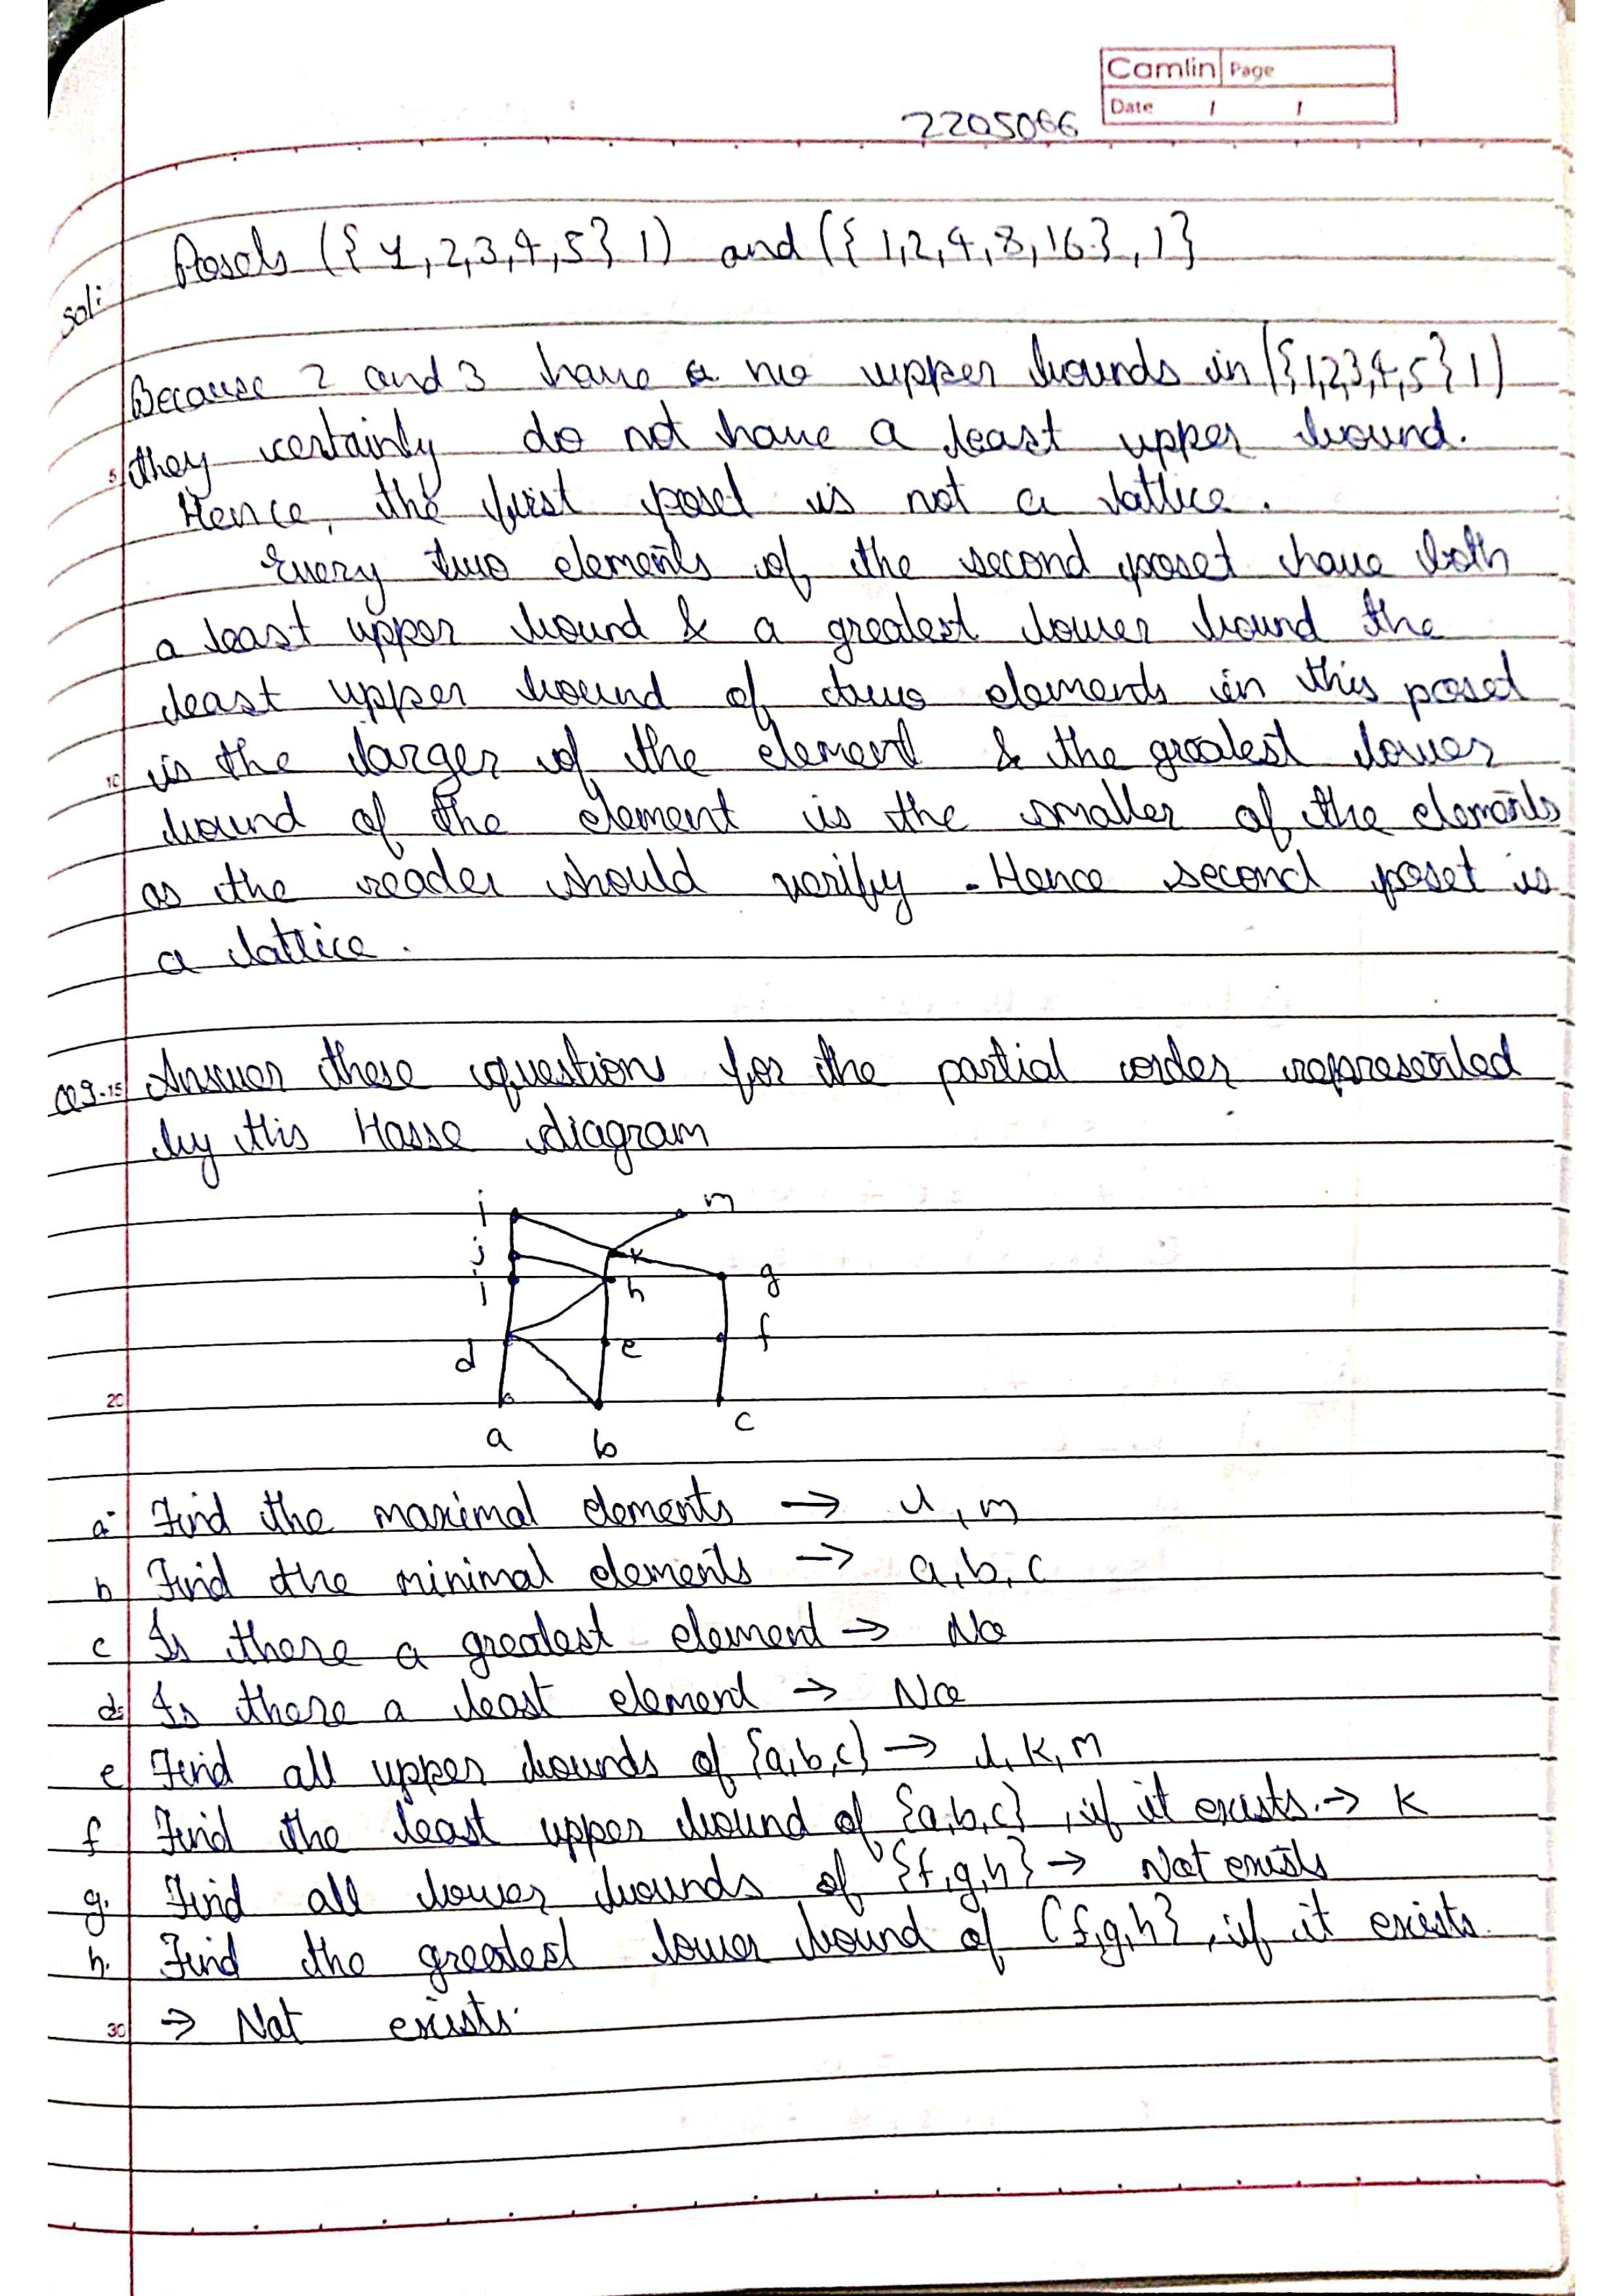 Camlin Page
Date / /
2205066
Posets ({1,2,3,4,5} 1) and ({1,2,4,8,16},1}
Sol:
Because 2 and 3 have a no upper bounds in ({1,2,3,4,5} 1)
5 they certainly do not have a least upper bound.
Hence, the first poset is not a lattice.
Every two elements of the second poset have both
a least upper bound & a greatest lower bound the
least upper bound of two elements in this poset
10 is the larger of the element & the greatest lower
bound of the element is the smaller of the elements
as the reader should verify. Hence second poset is
a lattice.
Q9. 15 Answer these question for the partial order represented
by this Hasse diagram
l m
j k
i h g
d e f
20
a b c
a. Find the maximal elements → l, m
b Find the minimal elements → a, b, c
c Is there a greatest element → No
d. Is there a least element → No
e Find all upper bounds of {a,b,c} → l, k, m
f Find the least upper bound of {a,b,c}, if it exists. → k
g. Find all lower bounds of {f,g,h} → Not exists
h. Find the greatest lower bound of {f,g,h}, if it exists.
30 → Not exists.